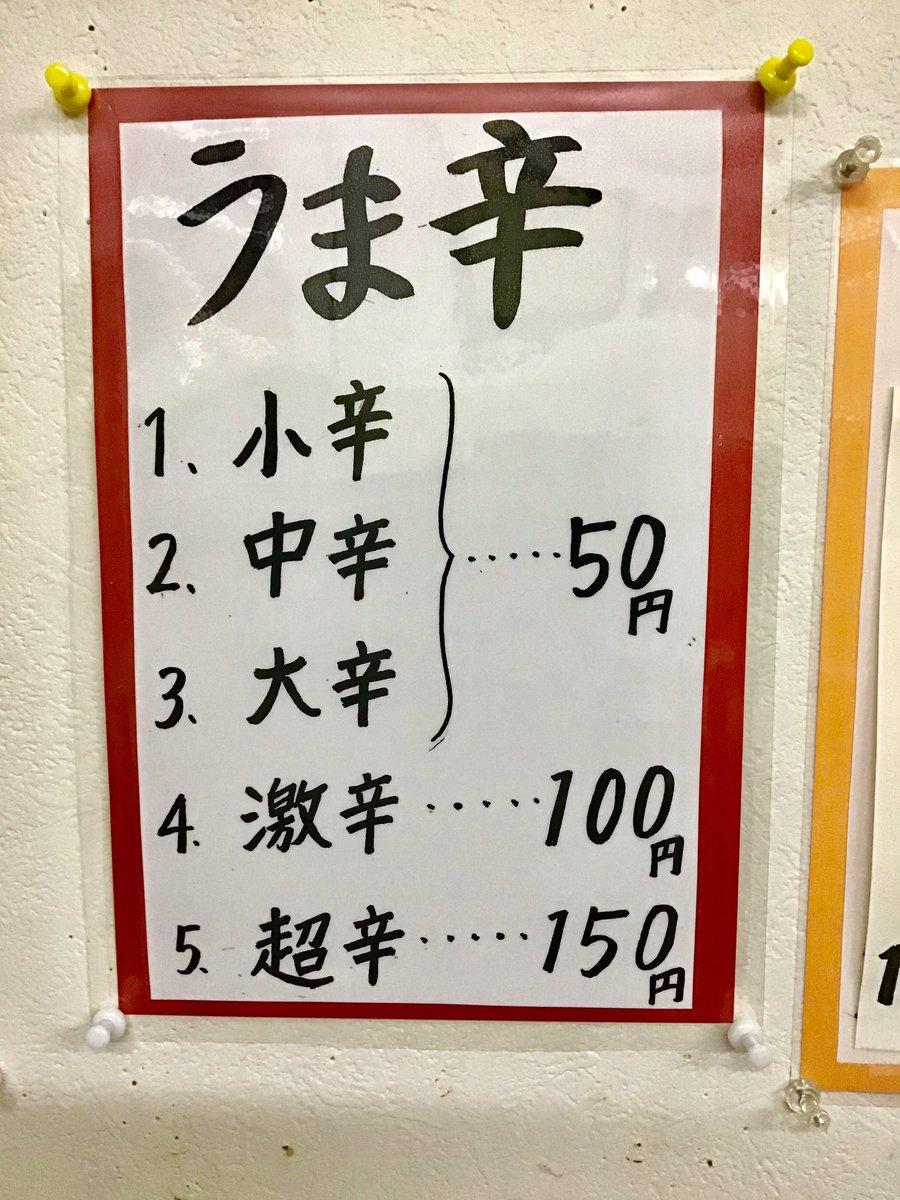 うま辛
1、小辛
2、中辛 ‥‥‥50円
3、大辛
4、激辛‥‥‥100円
5、超辛‥‥‥150円
1